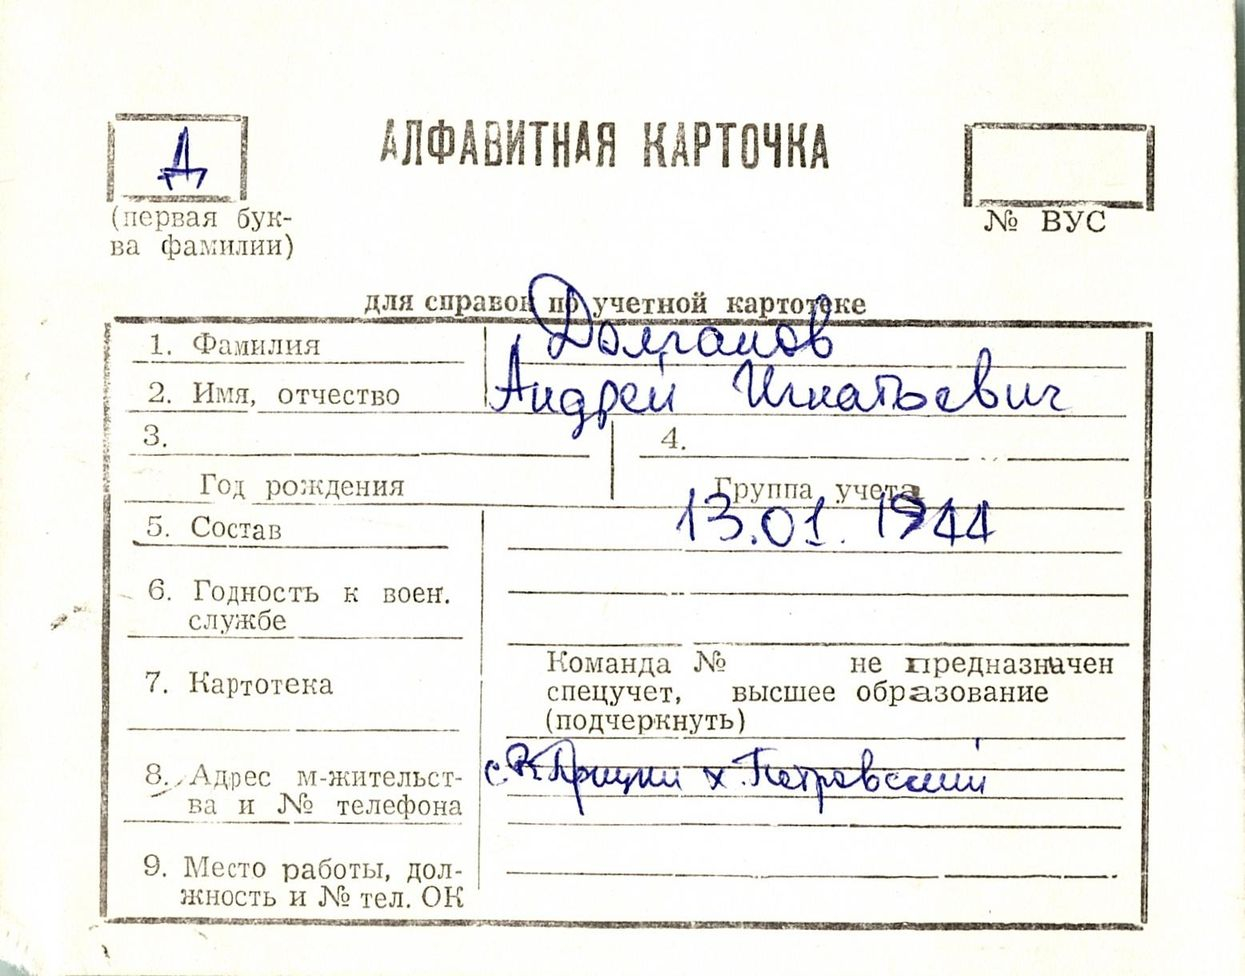 Д
АЛФАВИТНАЯ КАРТОЧКА
(первая бук-
ва фамилии)
№ ВУС
для справок по учетной картотеке
1. Фамилия Долганов
2. Имя, отчество Андрей Игнатьевич
3.
4.
Год рождения
Группа учета
13.01.1944
5. Состав
6. Годность к воен.
службе
7. Картотека
Команда № не предназначен
спецучет, высшее образование
(подчеркнуть)
8. Адрес м-жительст-
ва и № телефона
с. х. Петровский
9. Место работы, дол-
жность и № тел. ОК